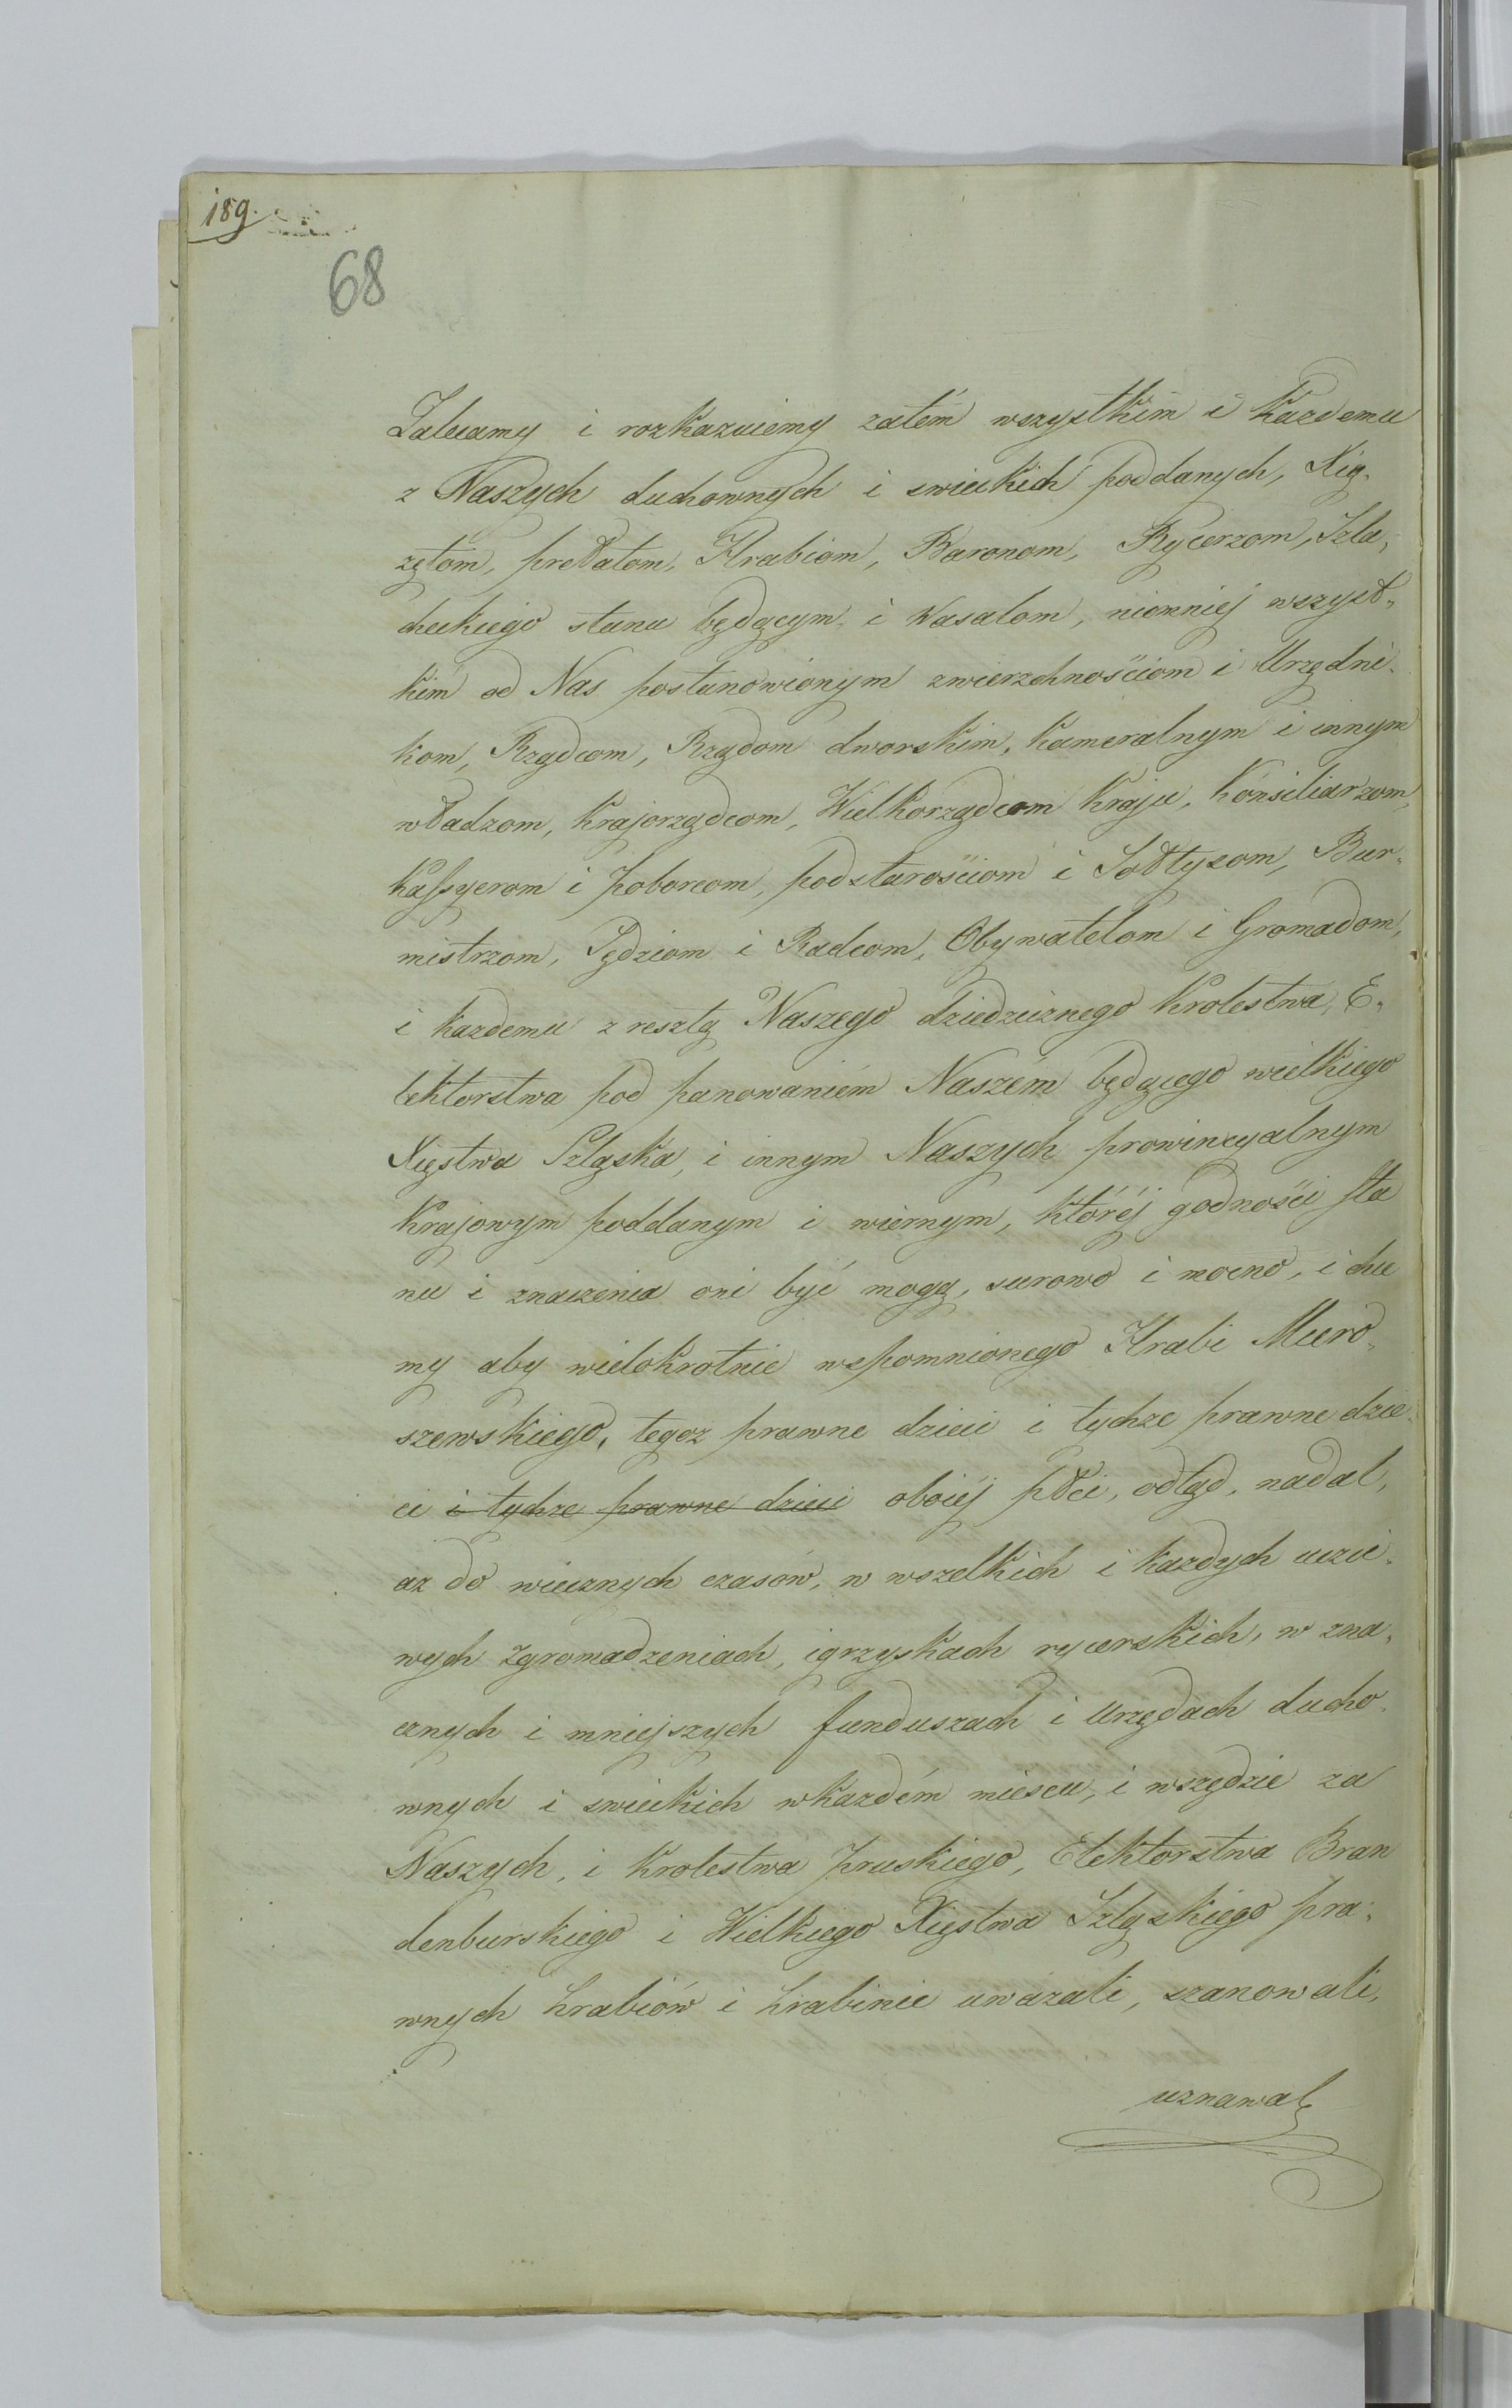 189.
68
Zalecamy i rozkazuiemy zatém wszystkim i każdemu
z Naszych duchownych i swieckich poddanych, Xią-
zętom, prełatom, Hrabiom, Baronom, Rycerzom, Szla-
checkiego stanu będącym i Wasalom, niemniej wszyst-
kim od Nas postanowionym zwierzchnościom i Urzędni-
kom, Rządcom, Rządom dworskim, kameralnym i innym
władzom, Krajorządcom, Wielkorządcom Kraju, Konsiliarzom,
Kassyerom i Poborcom, podstarościom i Sołtysom, Bur-
mistrzom, Sędziom i Radcom, Obywatelom i Gromadom,
i kazdemu z resztą Naszego dziedzicznego Krolestwa, E-
lektorstwa pod panowaniém Naszém będącego wielkiego
Xięstwa Szląska, i innym Naszych prowincyalnym
Krajowym poddanym i wiernym, którèj godności sta
nu i znaczenia oni być mogą, surowo i mocno, i chce
my aby wielokrotnie wspomnionego Hrabi Miero-
szewskiego, tegoz prawne dzieci i tychze prawne dzie-
ci i tychze prawne dzieci oboiéj płci, odtąd, nadal,
az do wiecznych czasów, w wszelkich i kazdych uczci-
wych zgromadzeniach, igrzyskach rycerskich, w zna-
cznych i mniejszych funduszach i Urzędach ducho-
wnych i swieckich wkazdém miescu, i wszędzie za
Naszych, i Krolestwa Pruskiego, Elektorstwa Bran
denburskiego i Wielkiego Xięstwa Szlązkiego pra-
wnych hrabiów i hrabinie uwazali, szanowali,
uznawali